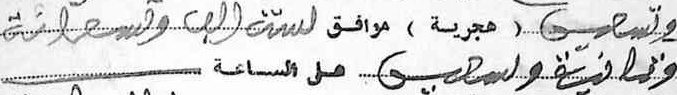 وتسعين ( هجرية ) موافق لسنة الف وتسعمائة
وثمانية وسبعين على الساعة